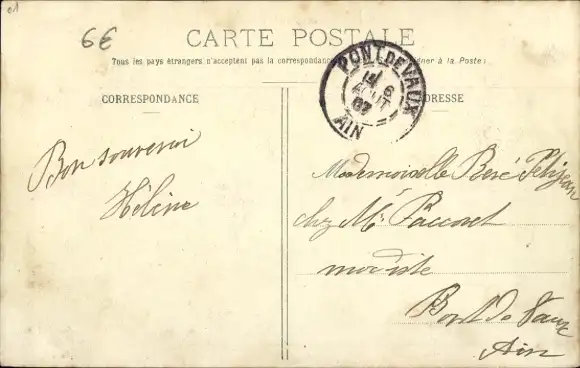 01
6€
CARTE POSTALE
Tous les pays étrangers n'acceptent pas la correspondance à la Poste)
CORRESPONDANCE
ADRESSE
PONT DE VAUX
14
6
AOUT
07
AIN
Bon souvenir
Hélène
Mademoiselle Petitjean
chez Mr
modiste
Pont de Vaux
Ain